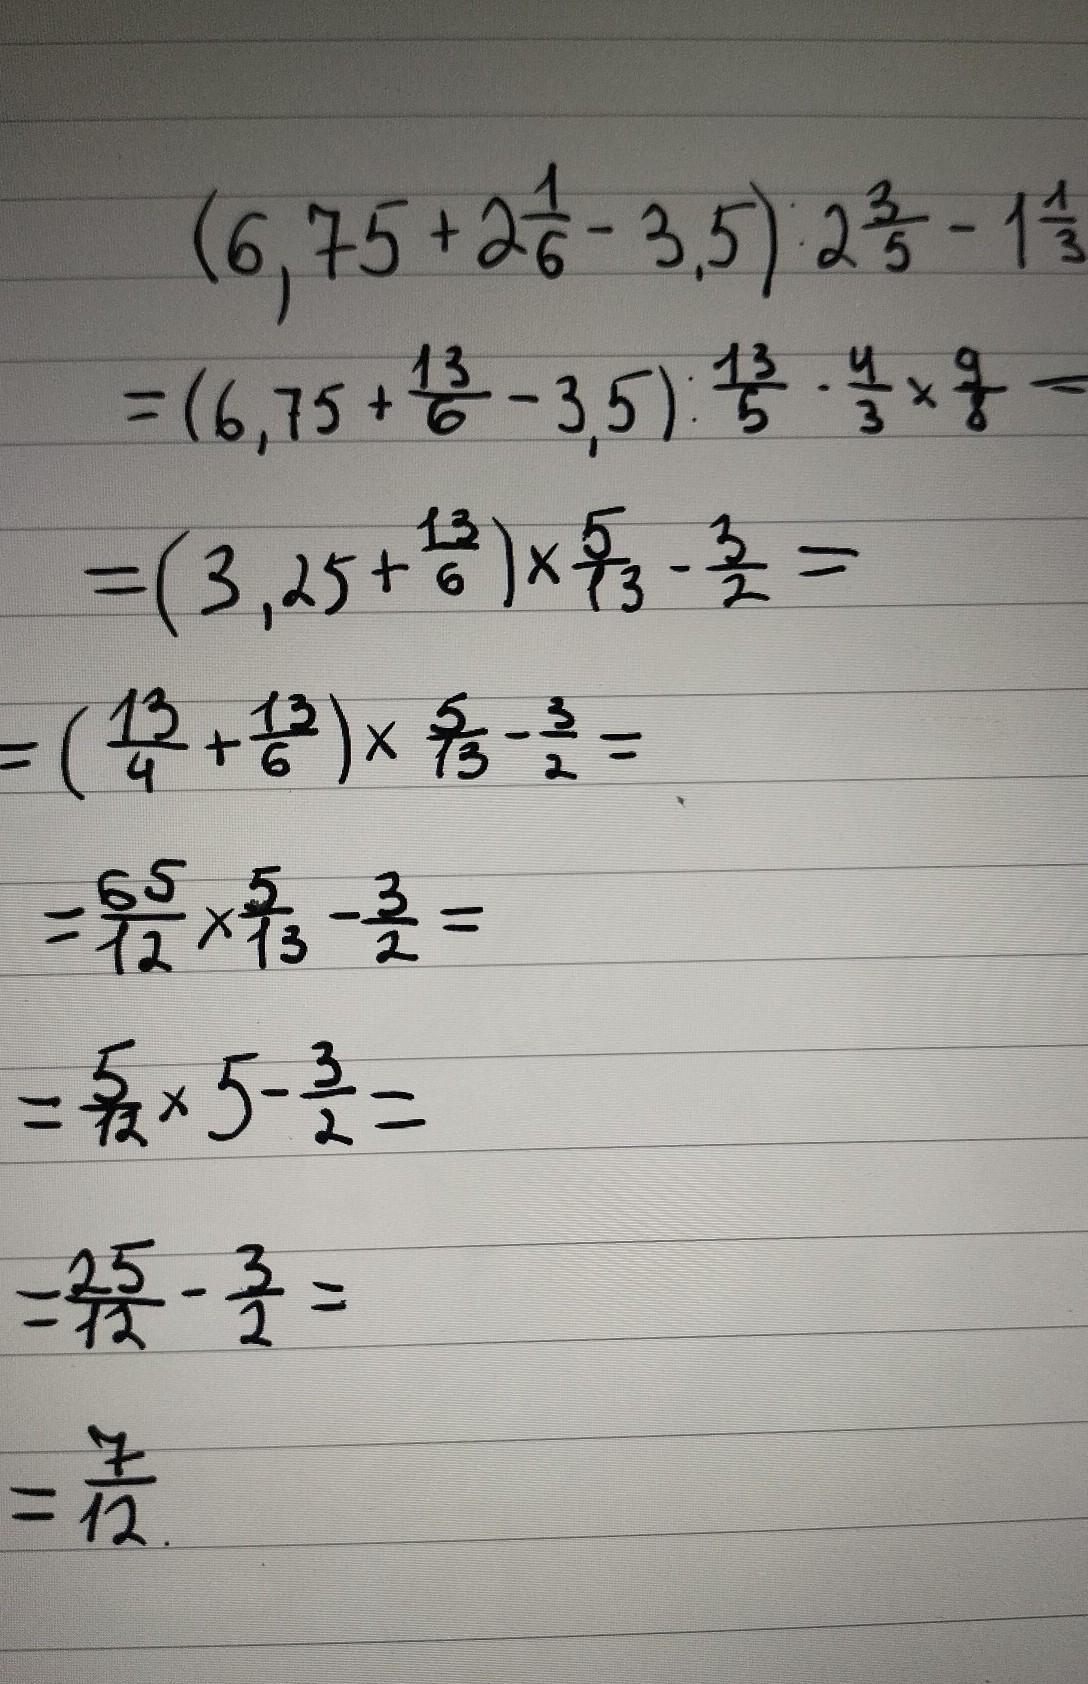 (6,75 + 2 1/6 - 3,5) : 2 3/5 - 1 1/3
= (6,75 + 13/6 - 3,5) : 13/5 - 4/3 × 9/8 =
= (3,25 + 13/6) × 5/13 - 3/2 =
= (13/4 + 13/6) × 5/13 - 3/2 =
= 65/12 × 5/13 - 3/2 =
= 5/12 × 5 - 3/2 =
= 25/12 - 3/2 =
= 7/12.